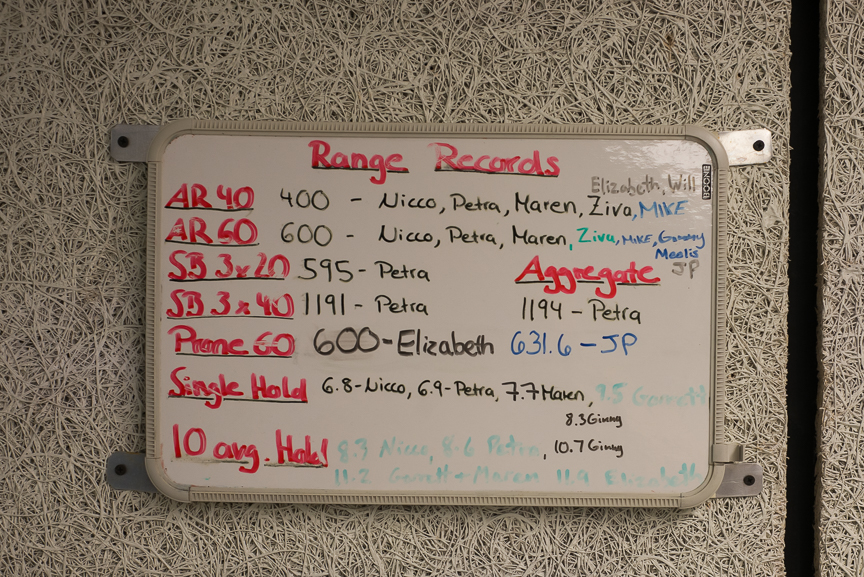 Range Records
Elizabeth, Will
AR 40 400 - Nicco, Petra, Maren, Ziva, MIKE
AR 60 600 - Nicco, Petra, Maren, Ziva, MIKE, Ginny
Meelis
JP
SB 3x20 595 - Petra
Aggregate
SB 3x40 1191 - Petra
1194 - Petra
Prone 60 600 - Elizabeth 631.6 - JP
Single Hold 6.8 - Nicco, 6.9 - Petra, 7.7 Maren, 9.5 Garrett
8.3 Ginny
10 avg. Hold 8.3 Nicco, 8.6 Petra, 10.7 Ginny
11.2 Garrett + Maren 11.9 Elizabeth